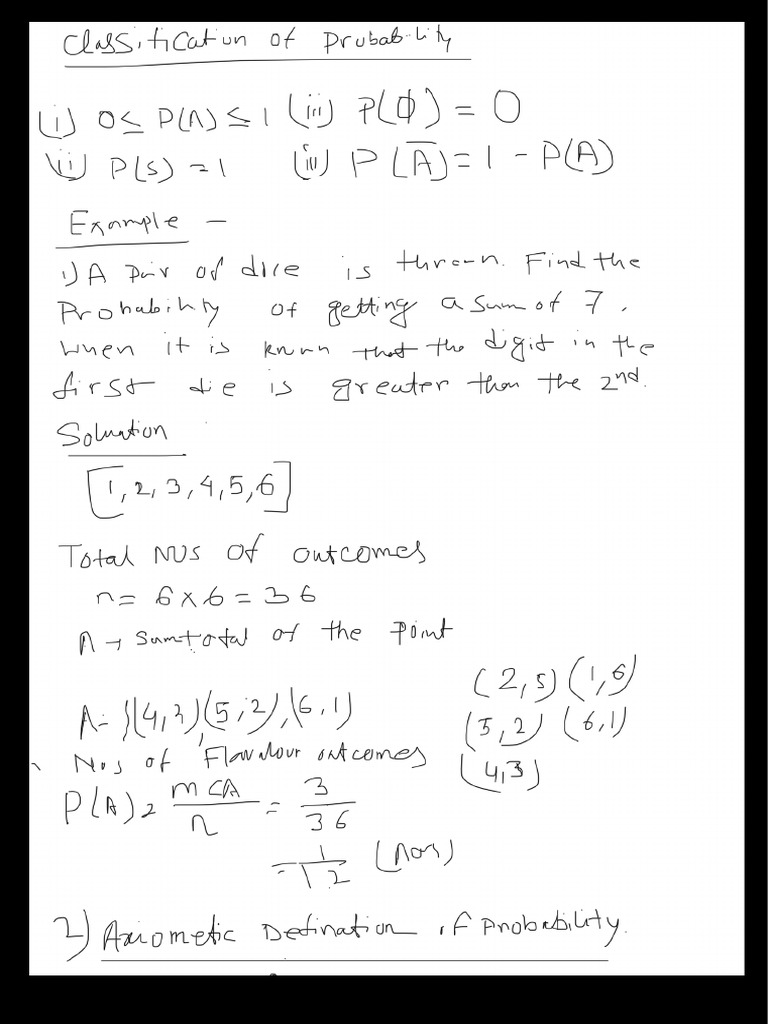 Classification of Probability
(i) 0 ≤ P(A) ≤ 1 (iii) P(ϕ) = 0
(ii) P(S) = 1 (iii) P(A̅) = 1 - P(A)
Example -
1) A Pair of dice is thrown. Find the
Probability of getting a sum of 7.
when it is known that the digit in the
first die is greater than the 2nd.
Soluation
[1, 2, 3, 4, 5, 6]
Total NOS of outcomes
n = 6 × 6 = 36
A → Sumtotal of the Point
(2, 5) (1, 6)
A = {(4, 3), (5, 2), (6, 1)
(5, 2) (6, 1)
Nos of outcomes
(4, 3)
P(A) = m(A / n = 3 / 36
= 1 / 12 (Nos)
2) Axiometic Defination of Probability.